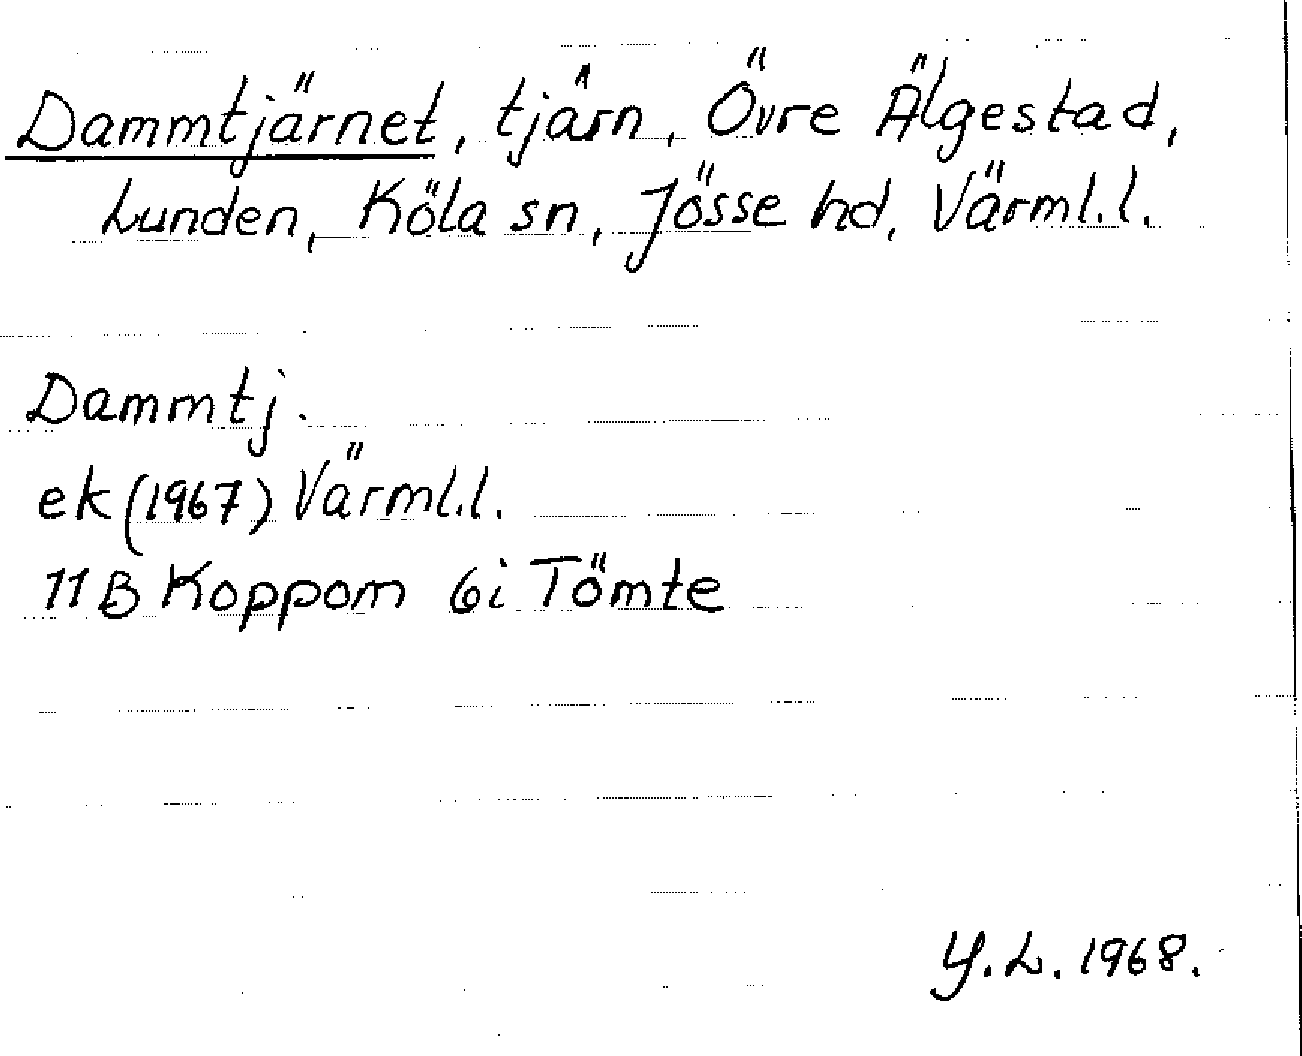 Dammtjärnet, tjärn, Övre Älgestad,
Lunden, Köla sn, Jösse hd, Värml.l.
Dammtj.
ek (1967) Värml.l.
11B Koppom 6i Tömte
Y.L. 1968.